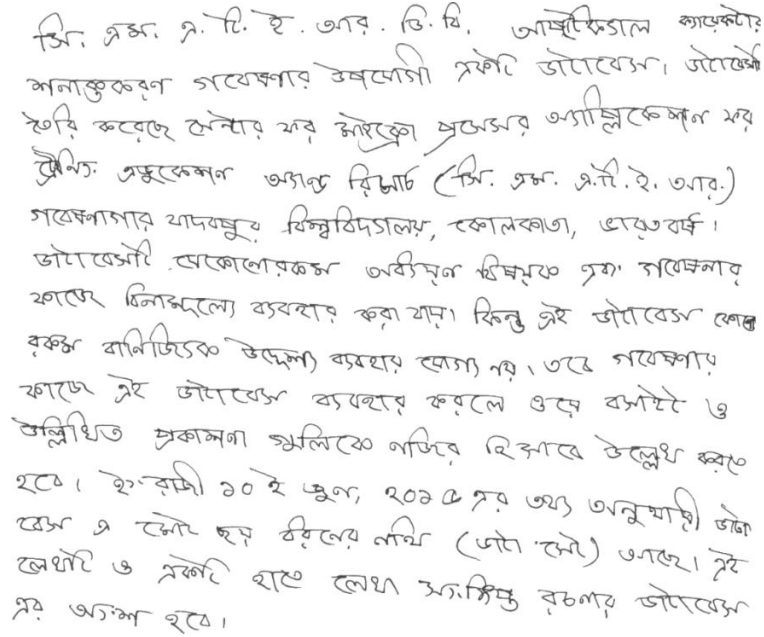 সি. এম. এ. টি. ই. আর. ডি. বি. অপ্টিকাল ক্যারেকটার
শনাক্তকরণ গবেষণার উপযোগী একটি ডাটাবেস। ডাটাবেসটি
তৈরি করেছে সেন্টার ফর মাইক্রো প্রসেসর অ্যাপ্লিকেশন ফর
ট্রেনিং এডুকেশন অ্যান্ড রিসার্চ (সি. এম. এ. টি. ই. আর.)
গবেষণাগার যাদবপুর বিশ্ববিদ্যালয়, কোলকাতা, ভারতবর্ষ।
ডাটাবেসটি যেকোনোরকম অধ্যয়ণ বিষয়ক এবং গবেষণার
কাজে বিনামূল্যে ব্যবহার করা যায়। কিন্তু এই ডাটাবেস কোন
রকম বানিজ্যিক উদ্দেশ্যে ব্যবহার যোগ্য নয়। তবে গবেষণার
কাজে এই ডাটাবেস ব্যবহার করলে ওয়েবসাইট ও
উল্লিখিত প্রকাশনা গুলিকে নজির হিসাবে উল্লেখ করতে
হবে। ইংরাজী ১০ ই জুন, ২০১৫ এর তথ্য অনুযায়ী ডাটা
বেস এ মোট ছয় ধরনের নথি (ডাটা সেট) আছে। এই
লেখাটি ও একটি হাতে লেখা সংক্ষিপ্ত রচনার ডাটাবেস
এর অংশ হবে।